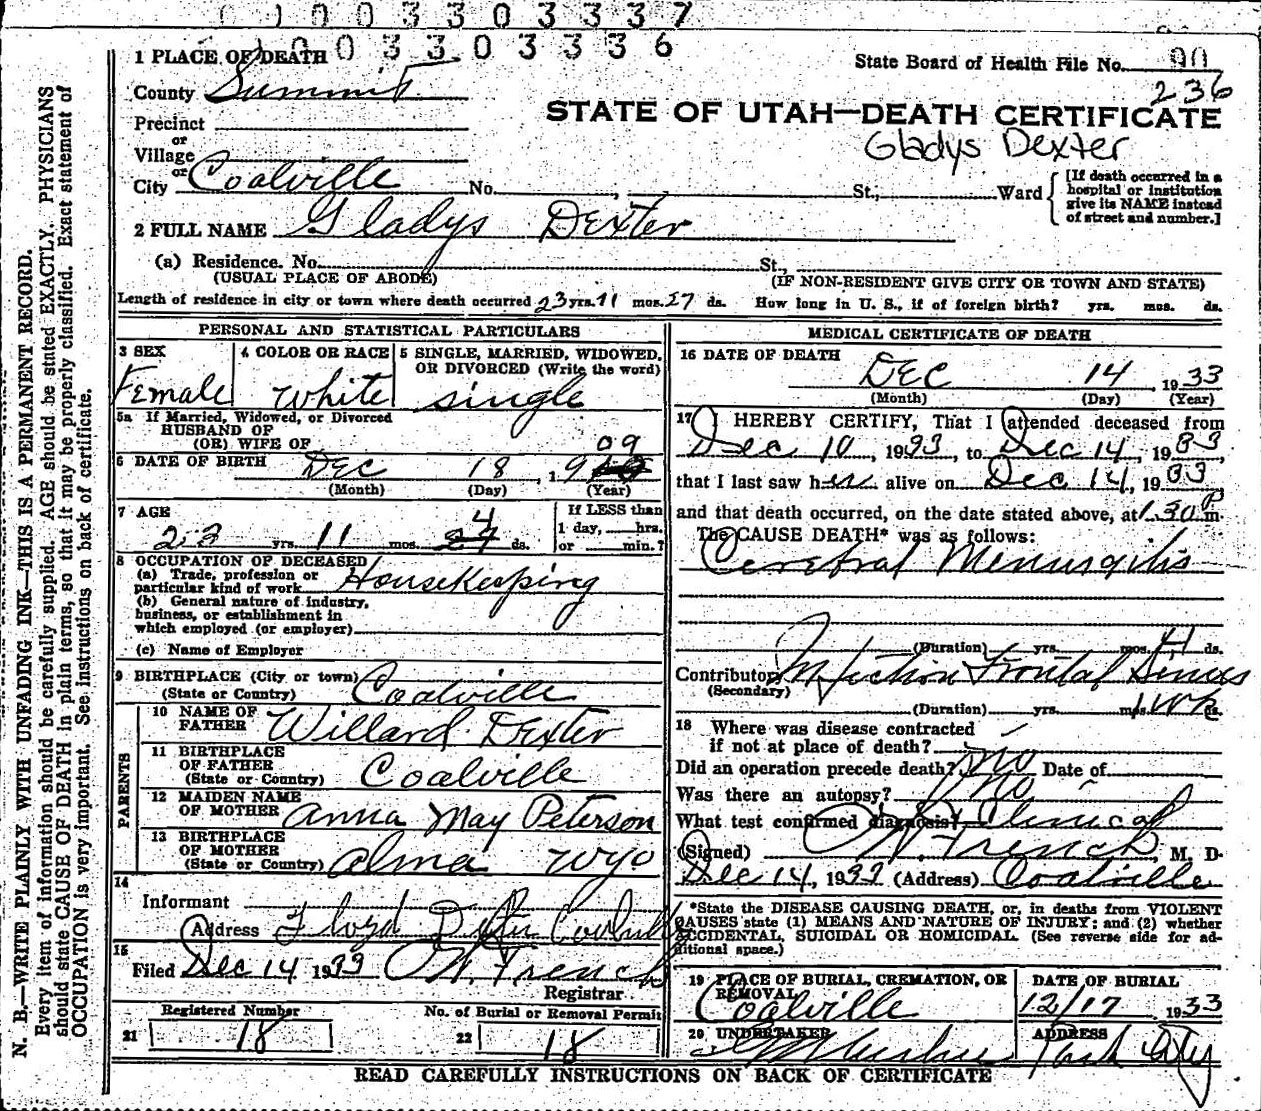 0 0 0 3 3 0 3 3 3 7
1 0 0 3 3 0 3 3 3 6
1 PLACE OF DEATH
State Board of Health File No. 90
County Summit
236
STATE OF UTAH—DEATH CERTIFICATE
Precinct
or
Gladys Dexter
Village
or
City Coalville No. , St., Ward
[If death occurred in a
hospital or institution
give its NAME instead
of street and number.]
2 FULL NAME Gladys Dexter
(a) Residence. No. St.,
(USUAL PLACE OF ABODE) (IF NON-RESIDENT GIVE CITY OR TOWN AND STATE)
Length of residence in city or town where death occurred 23 yrs. 11 mos. 27 ds. How long in U. S., if of foreign birth? yrs. mos. ds.
PERSONAL AND STATISTICAL PARTICULARS
3 SEX 4 COLOR OR RACE 5 SINGLE, MARRIED, WIDOWED,
OR DIVORCED (Write the word)
Female White single
5a If Married, Widowed, or Divorced
HUSBAND OF
(OR) WIFE OF
09
6 DATE OF BIRTH Dec 18, 19
(Month) (Day) (Year)
7 AGE
If LESS than
1 day, hrs.
or min.?
4
23 yrs. 11 mos. 27 ds.
8 OCCUPATION OF DECEASED
(a) Trade, profession or
particular kind of work Housekeeping
(b) General nature of industry,
business, or establishment in
which employed (or employer)
(c) Name of Employer
9 BIRTHPLACE (City or town) Coalville
(State or Country)
PARENTS
10 NAME OF
FATHER Willard Dexter
11 BIRTHPLACE
OF FATHER
(State or Country) Coalville
12 MAIDEN NAME
OF MOTHER Anna May Peterson
13 BIRTHPLACE
OF MOTHER
(State or Country) Alma Wyo
14
Informant
Address Floyd Dexter Coalville
15
Filed Dec 14 1933 O W. French
Registrar
Registered Number No. of Burial or Removal Permit
21 18 22 18
MEDICAL CERTIFICATE OF DEATH
16 DATE OF DEATH
Dec 14 1933
(Month) (Day) (Year)
17 I HEREBY CERTIFY, That I attended deceased from
Dec 10, 1933, to Dec 14, 1933,
that I last saw her alive on Dec 14, 1933
and that death occurred, on the date stated above, at 1.30 P m.
The CAUSE DEATH* was as follows:
Cerebral Meningitis
(Duration) yrs. mos. 4 ds.
Contributory Infection Frontal Sinus
(Secondary)
(Duration) yrs. mos. 1 wk ds.
18 Where was disease contracted
if not at place of death?
Did an operation precede death? no Date of
Was there an autopsy? no
What test confirmed diagnosis? Clinical
(Signed) O W. French, M. D.
Dec 14, 1933 (Address) Coalville
*State the DISEASE CAUSING DEATH, or, in deaths from VIOLENT
CAUSES state (1) MEANS AND NATURE OF INJURY; and (2) whether
ACCIDENTAL, SUICIDAL OR HOMICIDAL. (See reverse side for ad-
ditional space.)
19 PLACE OF BURIAL, CREMATION, OR
REMOVAL
Coalville
DATE OF BURIAL
12/17 1933
20 UNDERTAKER ADDRESS
Park City
READ CAREFULLY INSTRUCTIONS ON BACK OF CERTIFICATE
N. B.—WRITE PLAINLY WITH UNFADING INK—THIS IS A PERMANENT RECORD.
Every item of information should be carefully supplied. AGE should be stated EXACTLY. PHYSICIANS
should state CAUSE OF DEATH in plain terms, so that it may be properly classified. Exact statement of
OCCUPATION is very important. See instructions on back of certificate.